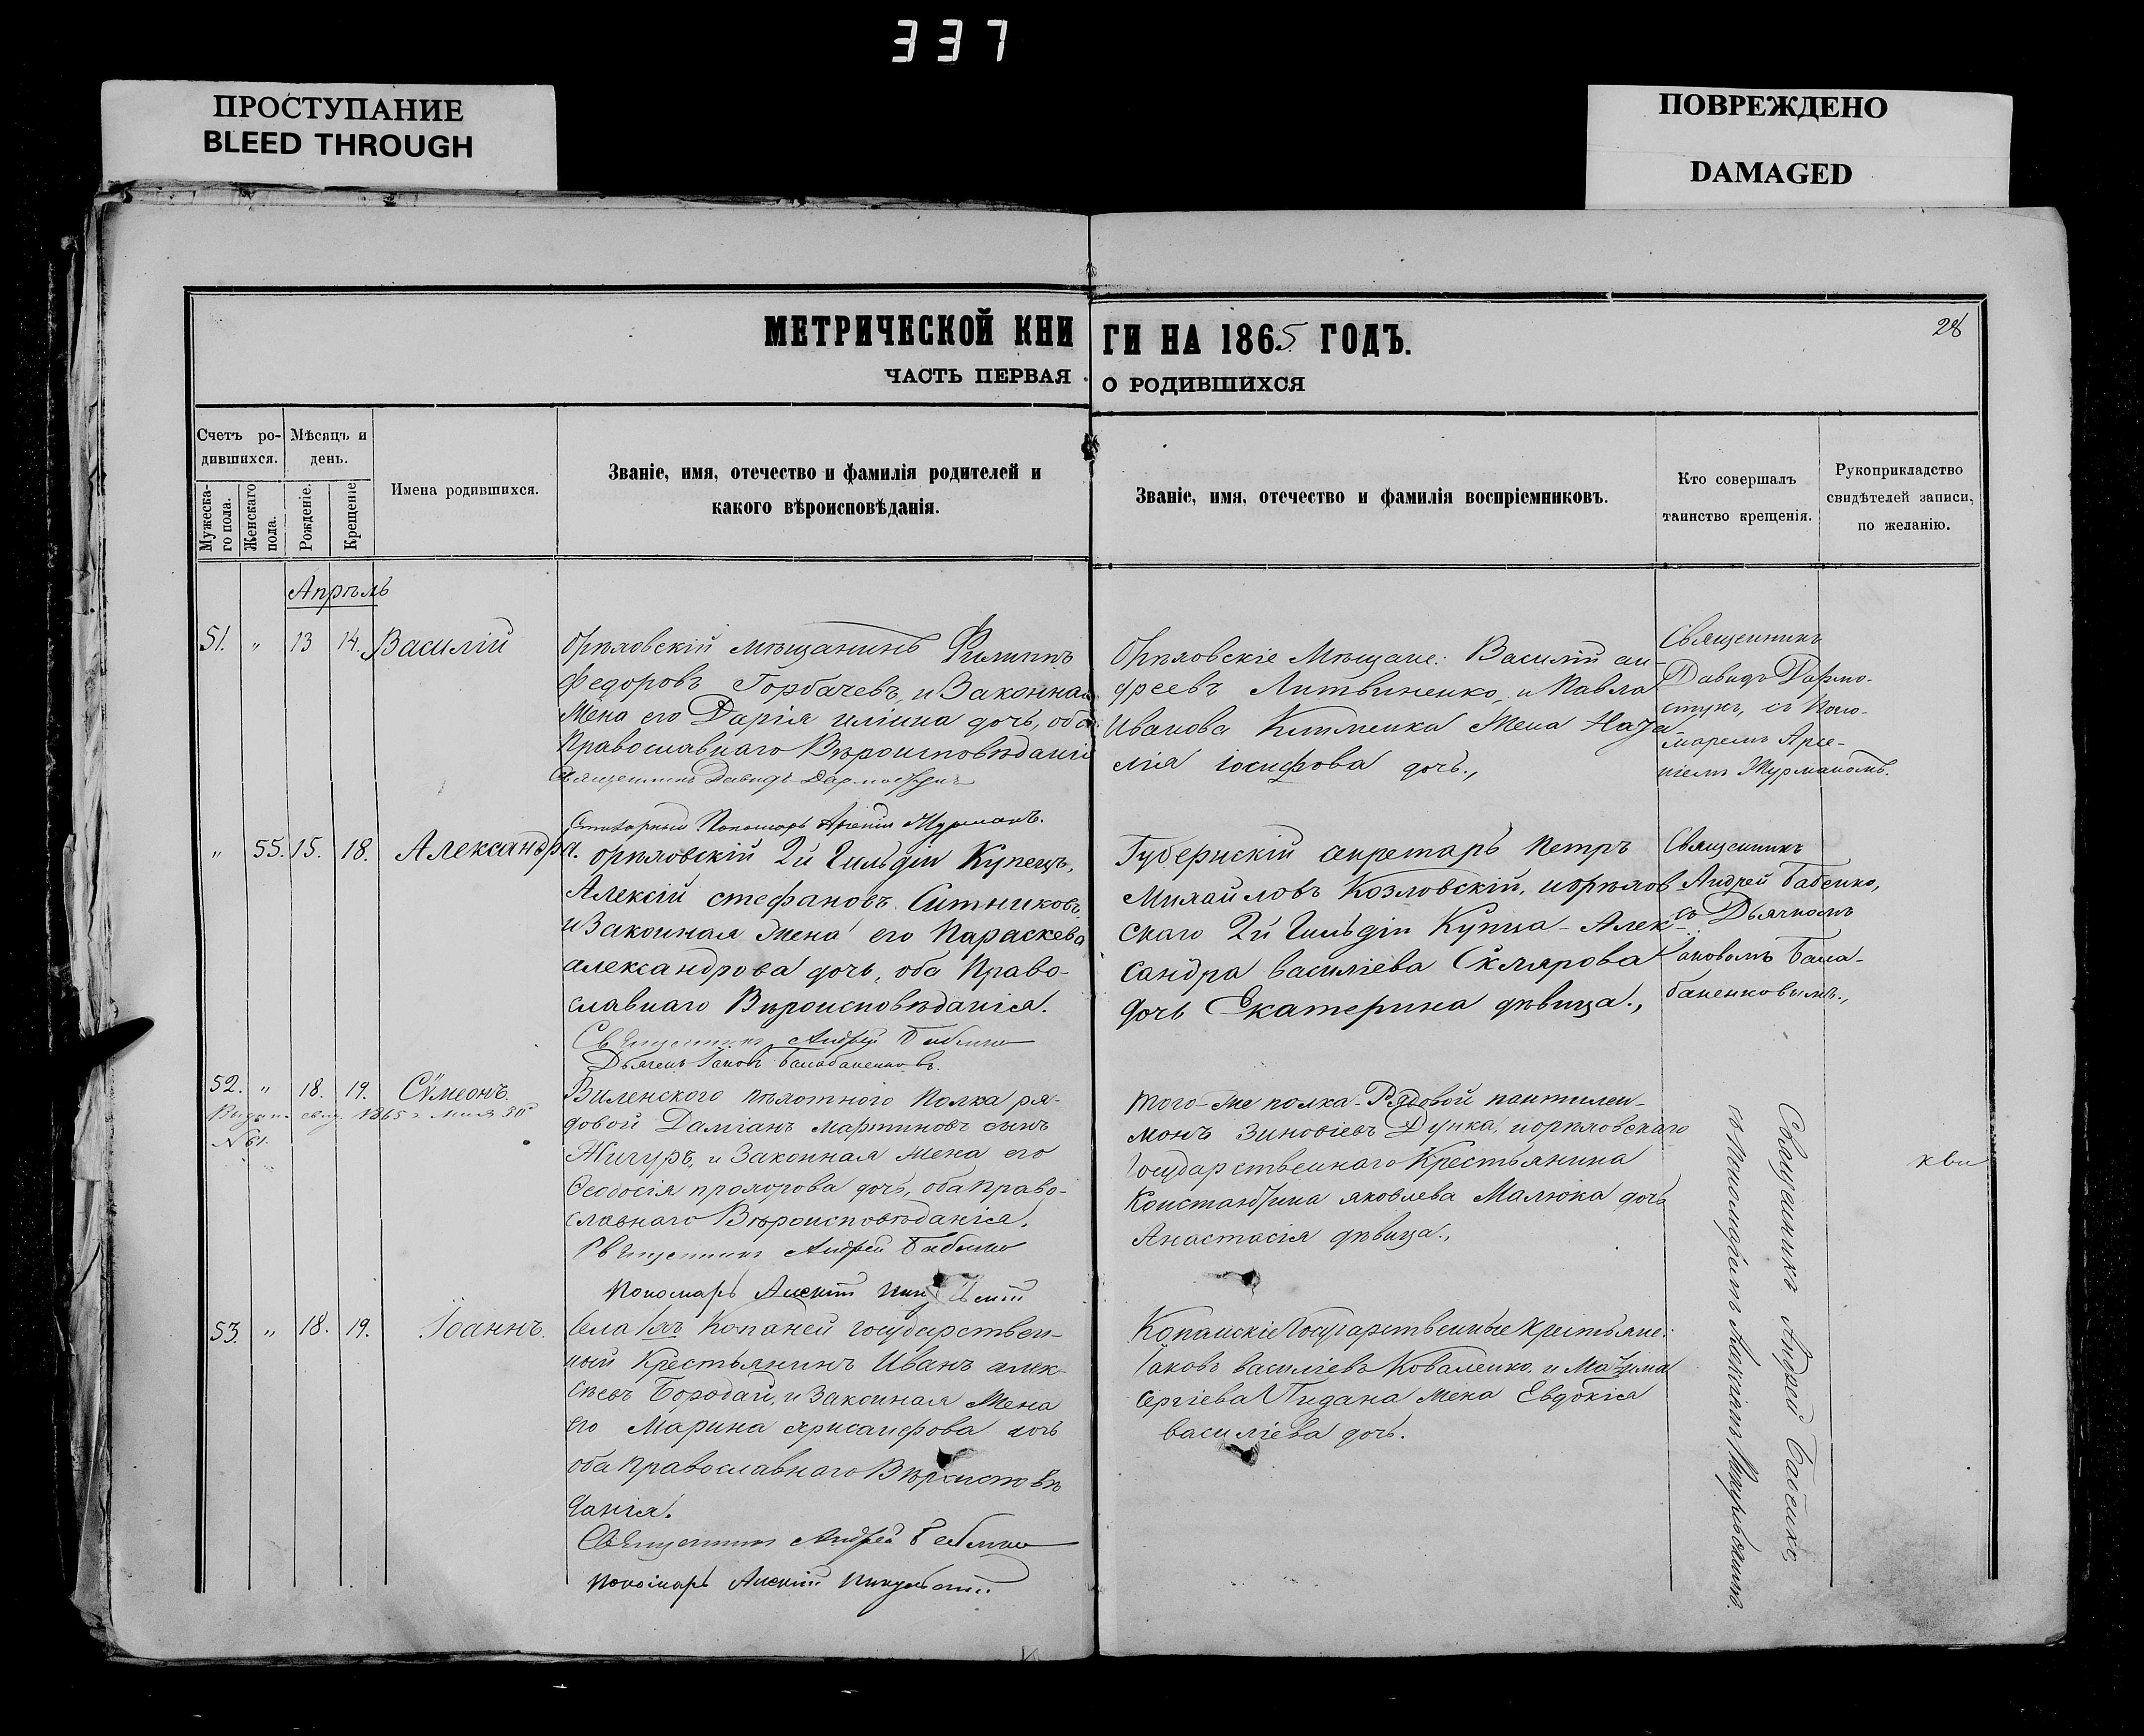 337
ПРОСТУПАНИЕ
BLEED THROUGH
ПОВРЕЖДЕНО
DAMAGED
28
МЕТРИЧЕСКОЙ КНИ ГИ НА 1865 ГОДЪ.
ЧАСТЬ ПЕРВАЯ О РОДИВШИХСЯ
Счетъ ро-
дившихся.
Мужеска-
го пола.
Женскаго
пола.
Мѣсяцъ и
день.
Рожденіе.
Крещеніе
Имена родившихся.
Званіе, имя, отечество и фамилія родителей и
какого вѣроисповѣданія.
Званіе, имя, отечество и фамилія воспріемниковъ.
Кто совершалъ
таинство крещенія.
Рукоприкладство
свидѣтелей записи,
по желанію.
Апрѣль
51. " 13 14. Василій
Орѣховскій мѣщанинъ Филиппъ
Федоровъ Горбачевъ, и Законная
Жена его Дарія иліина дочь, оба
Православнаго Вѣроисповѣданія
Священникъ Давидъ Дармостукъ
Стихарный Пономарь Арсеній Журманъ.
Орѣховскіе Мѣщане: Василій ан-
дреевъ Литвиненко, и Павла
Иванова Жена
іосифова дочь.,
Священникъ
Давидъ Дармо-
стукъ, съ Поно-
маремъ Арсе-
ніемъ Журманомъ.
" 55. 15. 18. Александра.
Орѣховскій 2й Гильдіи Купецъ,
Алексій стефановъ Ситниковъ,
и Законная жена его Параскева
александрова дочь, оба Право-
славнаго Вѣроисповѣданія.
Священникъ Андрей Бабенко
Дьячекъ Іаковъ Балабаненковъ.
Губернскій секретарь Петръ
Михайловъ Козловскій, иорѣхов
скаго 2й Гильдіи Купца - Алек-
сандра василіева Склярова
дочь Екатерина дѣвица.,
Священникъ
Андрей Бабенко,
съ Дьячкомъ
Іаковомъ Бала-
баненковымъ.,
52. " 18. 19. Сѵмеонъ.
1865
№ 61.
Виленского пѣхотного Полка ря-
довой Даміанъ мартиновъ сынъ
Жигуръ, и Законная жена его
Феодосія прохорова дочь, оба Право-
славнаго Вѣроисповѣданія.
Священникъ Андрей Бабенко
Пономарь Алексій
Того-же полка - Рядовой пантилеи-
монъ Зиновіевъ Дунка, иорѣховскаго
Государственнаго Крестьянина
Константина яковлева Малюка дочь
Анастасія дѣвица.,
Священникъ Андрей Бабенко,
съ Пономаремъ Алексіемъ
53. " 18. 19. Іоаннъ.
Села Копаней государствен-
ный Крестьянинъ Иванъ алек-
сѣевъ Бородай, и Законная Жена
его Марина хрисанфова дочь
оба православнаго Вѣроисповѣ
данія.
Священникъ Андрей Бабенко
Пономарь Алексій
Копанскіе Государственные крестьяне:
Іаковъ василіевъ Коваленко, и Максима
сергіева жена Евдокія
василіева дочь.